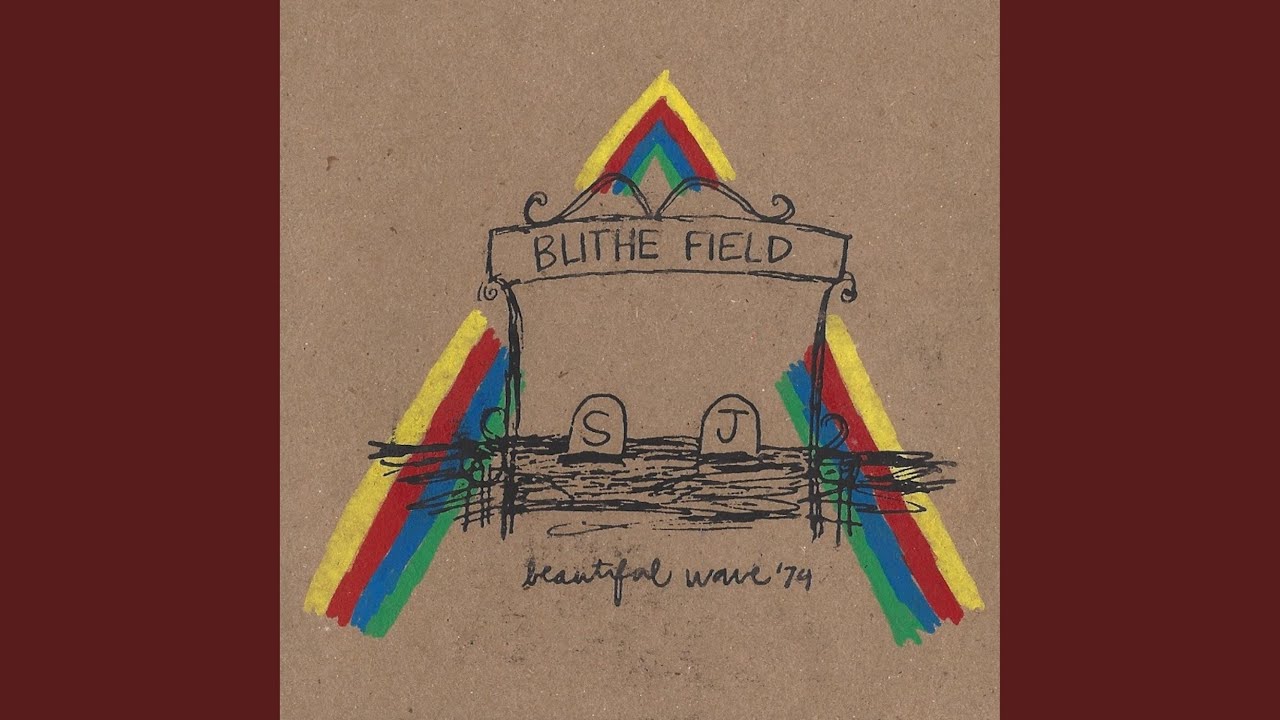 BLITHE FIELD
S J
beautiful wave '74